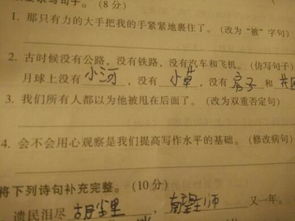 写句子。(8分)
1. 那只有力的大手把我的手紧紧地裹住了。(改为“被”字句)
2. 古时候没有公路，没有铁路，没有汽车和飞机。(仿写句子)
月球上没有小河，没有小草，没有房子和
3. 我们所有人都以为他被甩在后面了。(改为双重否定句)
4. 会不会用心观察是我们提高写作水平的基础。(修改病句)
将下列诗句补充完整。(10分)
遗民泪尽胡尘里，南望王师又一年。